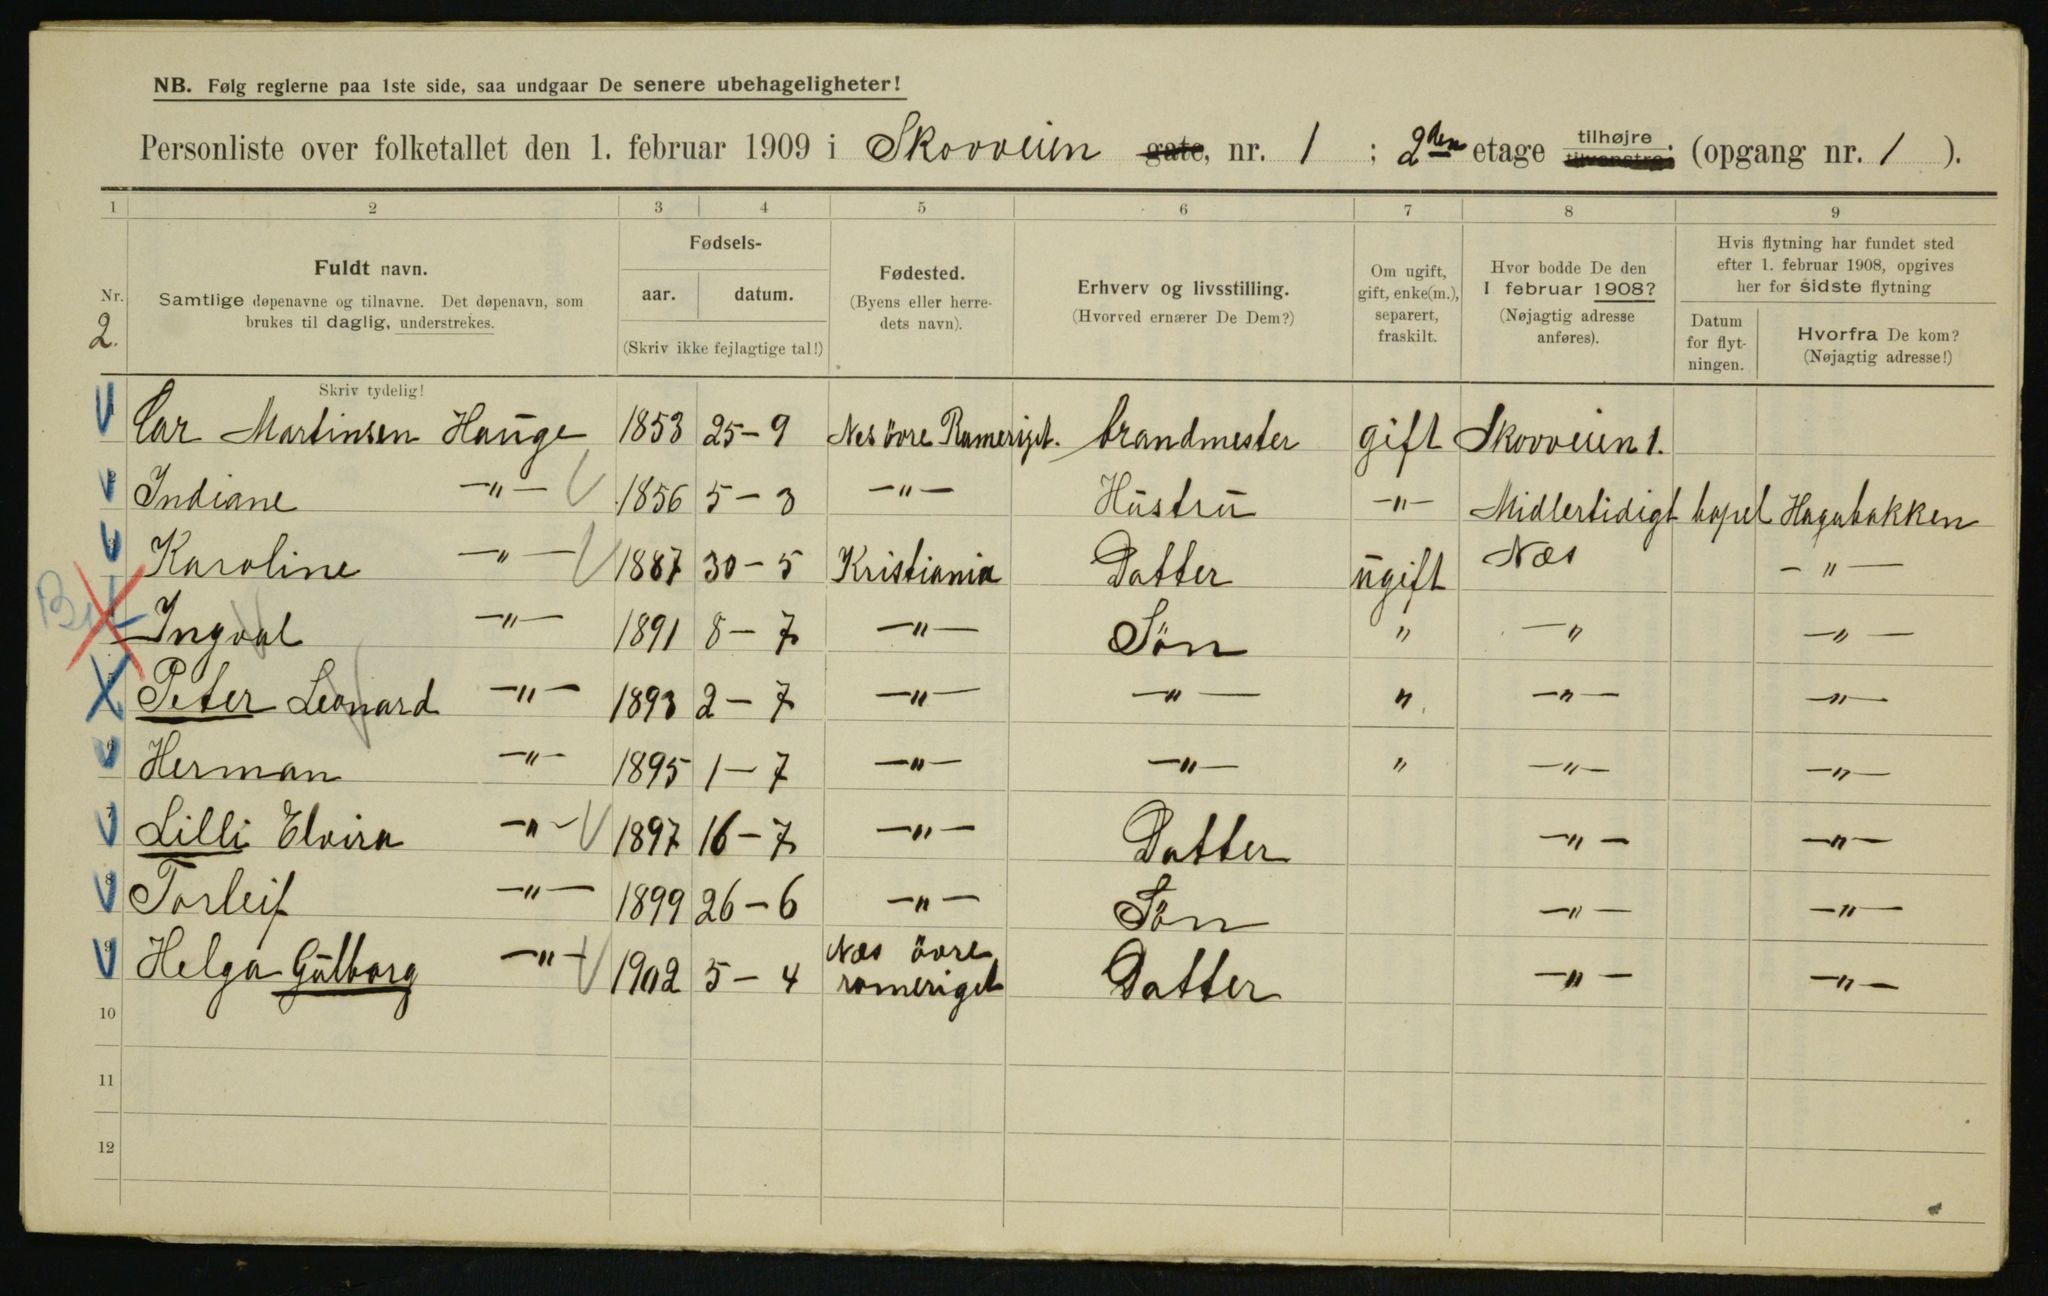 NB. Følg reglerne paa 1ste side, saa undgaar De senere ubehageligheter!
Personliste over folketallet den 1. februar 1909 i Skovveien gate, nr. 1 ; 2den etage tilhøjre. tilvenstre. (opgang nr. 1 ).
1 2 3 4 5 6 7 8 9
Nr.
2.
Fuldt navn.
Samtlige døpenavne og tilnavne. Det døpenavn, som
brukes til daglig, understrekes.
Skriv tydelig!
Fødsels-
aar. datum.
(Skriv ikke fejlagtige tal!)
Fødested.
(Byens eller herre-
dets navn).
Erhverv og livsstilling.
(Hvorved ernærer De Dem?)
Om ugift,
gift, enke(m.),
separert,
fraskilt.
Hvor bodde De den
1 februar 1908?
(Nøjagtig adresse
anføres).
Hvis flytning har fundet sted
efter 1. februar 1908, opgives
her for sidste flytning
Datum
for flyt-
ningen.
Hvorfra De kom?
(Nøjagtig adresse!)
Lar Martinsen Hauge 1853 25-9 Nes övre Rameriget. brandmester gift Skovveien 1.
2 Indiane -"- 1856 5-3 -"- Hustru -"- Midlertidigt bopel Hagabakken
3 Karoline -"- 1887 30-5 Kristiania Datter ugift Næs -"-
Ingval -"- 1891 8-7 -"- Sön " -" -"-
Peter Leonard -"- 1893 2-7 -"- -"- " -"- -"-
6 Herman -"- 1895 1-7 -"- -"- " -"- -"-
7 Lilli Elvira -"- 1897 16-7 -"- Datter -"- -"-
8 Torleif -"- 1899 26-6 -"- Sön -"- -"-
9 Helga Gulborg -"- 1902 5-4 Næs övre romeriget Datter -"- -"-
10
11
12